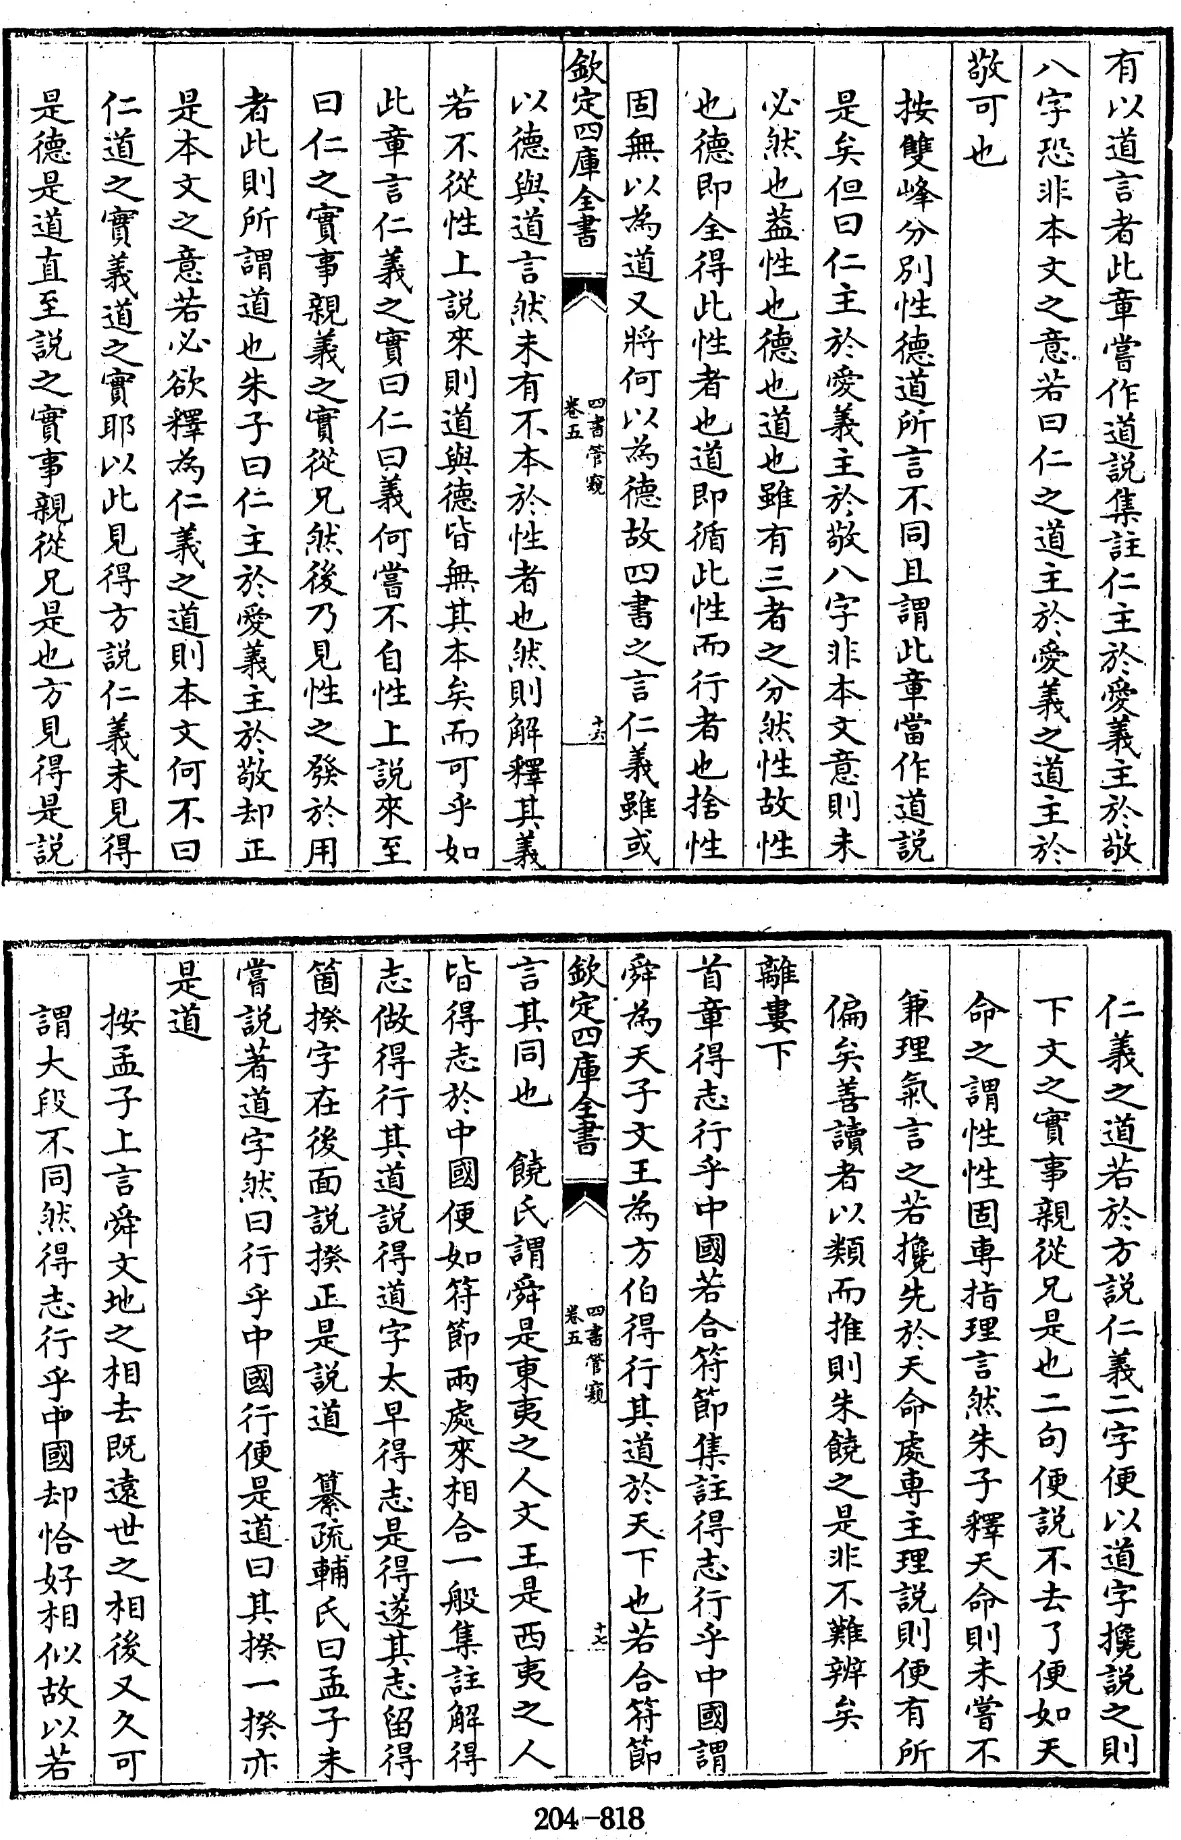 有以道言者此章當作道説集註仁主於愛義主於敬
八字恐非本文之意若曰仁之道主於愛義之道主於
敬可也
按雙峰分別性德道所言不同且謂此章當作道説
是矣但曰仁主於愛義主於敬八字非本文意則未
必然也蓋性也德也道也雖有三者之分然性故性
也德即全得此性者也道即循此性而行者也捨性
固無以為道又將何以為德故四書之言仁義雖或
欽定四庫全書
四書管窺
卷五
十六
以德與道言然未有不本於性者也然則解釋其義
若不從性上説來則道與德皆無其本矣而可乎如
此章言仁義之實曰仁曰義何嘗不自性上説來至
曰仁之實事親義之實從兄然後乃見性之發於用
者此則所謂道也朱子曰仁主於愛義主於敬却正
是本文之意若必欲釋為仁義之道則本文何不曰
仁道之實義道之實耶以此見得方説仁義未見得
是德是道直至説之實事親從兄是也方見得是説
仁義之道若於方説仁義二字便以道字攙説之則
下文之實事親從兄是也二句便説不去了便如天
命之謂性性固專指理言然朱子釋天命則未嘗不
兼理氣言之若攙先於天命處專主理説則便有所
偏矣善讀者以類而推則朱饒之是非不難辨矣
離婁下
首章得志行乎中國若合符節集註得志行乎中國謂
舜為天子文王為方伯得行其道於天下也若合符節
欽定四庫全書
四書管窺
卷五
十七
言其同也　饒氏謂舜是東夷之人文王是西夷之人
皆得志於中國便如符節兩處來相合一般集註解得
志做得行其道説得道字太早得志是得遂其志留得
箇揆字在後面説揆正是説道　纂疏輔氏曰孟子未
嘗説著道字然曰行乎中國行便是道曰其揆一揆亦
是道
按孟子上言舜文地之相去既遠世之相後又久可
謂大段不同然得志行乎中國却恰好相似故以若
204-818